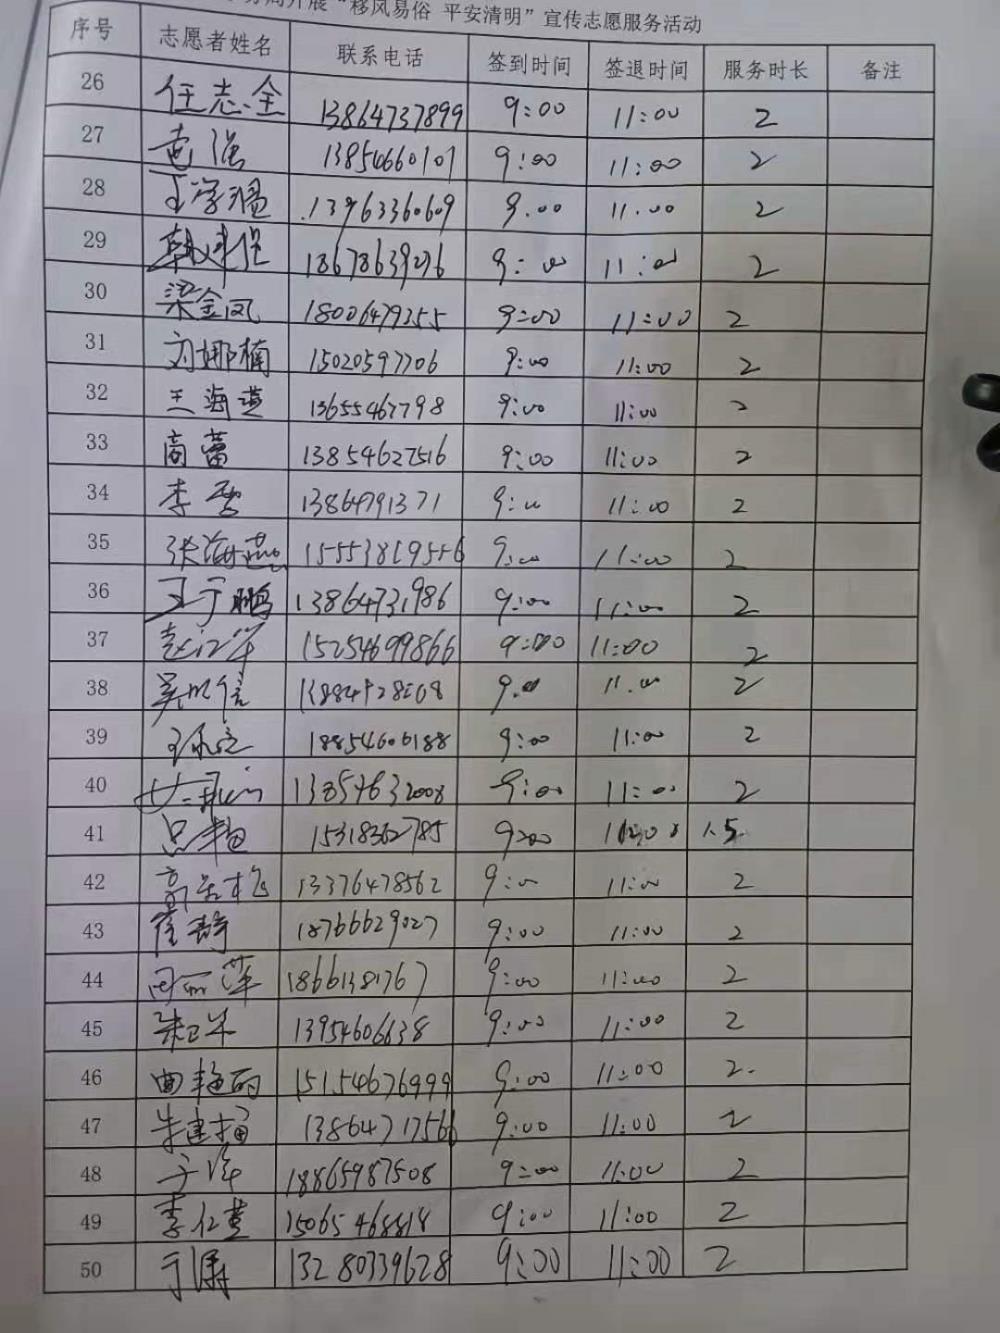 开展“移风易俗 平安清明”宣传志愿服务活动
序号 志愿者姓名 联系电话 签到时间 签退时间 服务时长 备注
26 任志全 13864737899 9:00 11:00 2
27 13854660101 9:00 11:00 2
28 13963360609 9.00 11.00 2
29 9:00 11:00 2
30 梁金凤 18006479255 9:00 11:00 2
31 刘娜楠 15020597706 9:00 11:00 2
32 王海燕 13655467798 9:00 11:00 2
33 商蕾 13854627516 9:00 11:00 2
34 李 13864791371 9:00 11:00 2
35 张海燕 9:00 11:00 2
36 王于鹏 13864731986 9:00 11:00 2
37 赵江华 15254699866 9:00 11:00 2
38 9.00 11.00 2
39 18854606188 9:00 11:00 2
40 13854632008 9:00 11:00 2
41 吕艳 15318362785 9:00 1.5
42 13376478562 9:00 11:00 2
43 崔静 18766629027 9:00 11:00 2
44 18661381767 9:00 11:00 2
45 13954606638 9:00 11:00 2
46 曲艳丽 15154676999 9:00 11:00 2.
47 朱建梅 13864717566 9:00 11:00 2
48 于洋 18865987508 9:00 11:00 2
49 李红莲 15065468818 9:00 11:00 2
50 于涛 13280339628 9:00 11:00 2